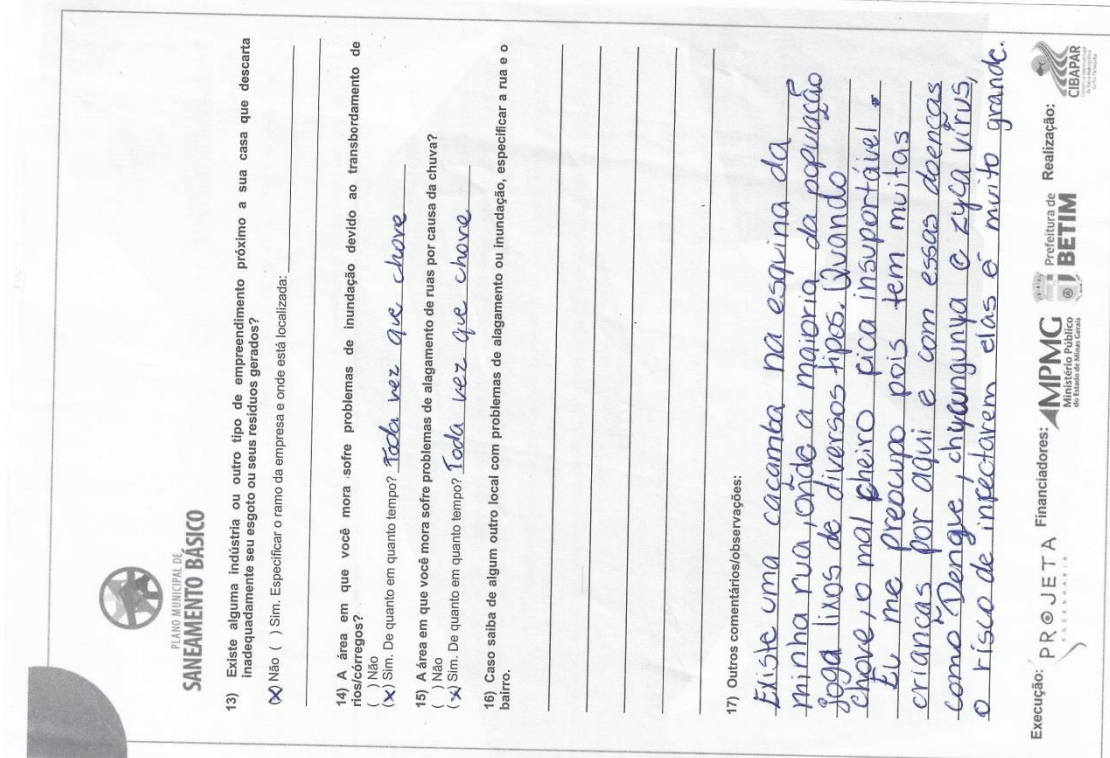 PLANO MUNICIPAL DE
SANEAMENTO BÁSICO
13) Existe alguma indústria ou outro tipo de empreendimento próximo a sua casa que descarta
inadequadamente seu esgoto ou seus resíduos gerados?
(x) Não ( ) Sim. Especificar o ramo da empresa e onde está localizada:
14) A área em que você mora sofre problemas de inundação devido ao transbordamento de
rios/córregos?
( ) Não
(x) Sim. De quanto em quanto tempo? Toda vez que chove
15) A área em que você mora sofre problemas de alagamento de ruas por causa da chuva?
( ) Não
(x) Sim. De quanto em quanto tempo? Toda vez que chove
16) Caso saiba de algum outro local com problemas de alagamento ou inundação, especificar a rua e o
bairro.
17) Outros comentários/observações:
Existe uma caçamba na esquina da
minha rua, onde a maioria da população
joga lixos de diversos tipos. Quando
chove, o mal cheiro fica insuportável.
Eu me preocupo pois tem muitas
crianças por aqui e com essas doenças
como Dengue, chycungunya e zyca vírus,
o risco de infectarem elas é muito grande.
Execução: PROJETA ENGENHARIA Financiadores: MPMG Ministério Público do Estado de Minas Gerais Prefeitura de BETIM Realização: CIBAPAR